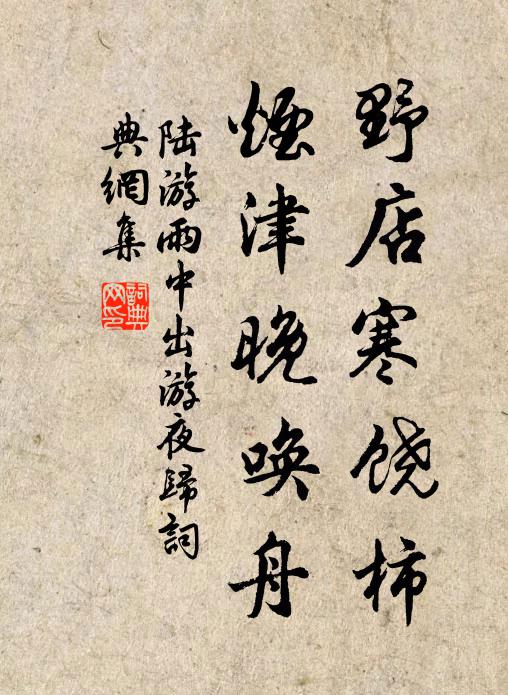 野店寒饶柿
烟津晚唤舟
陆游雨中出游夜归詞
典網集
詞典网印